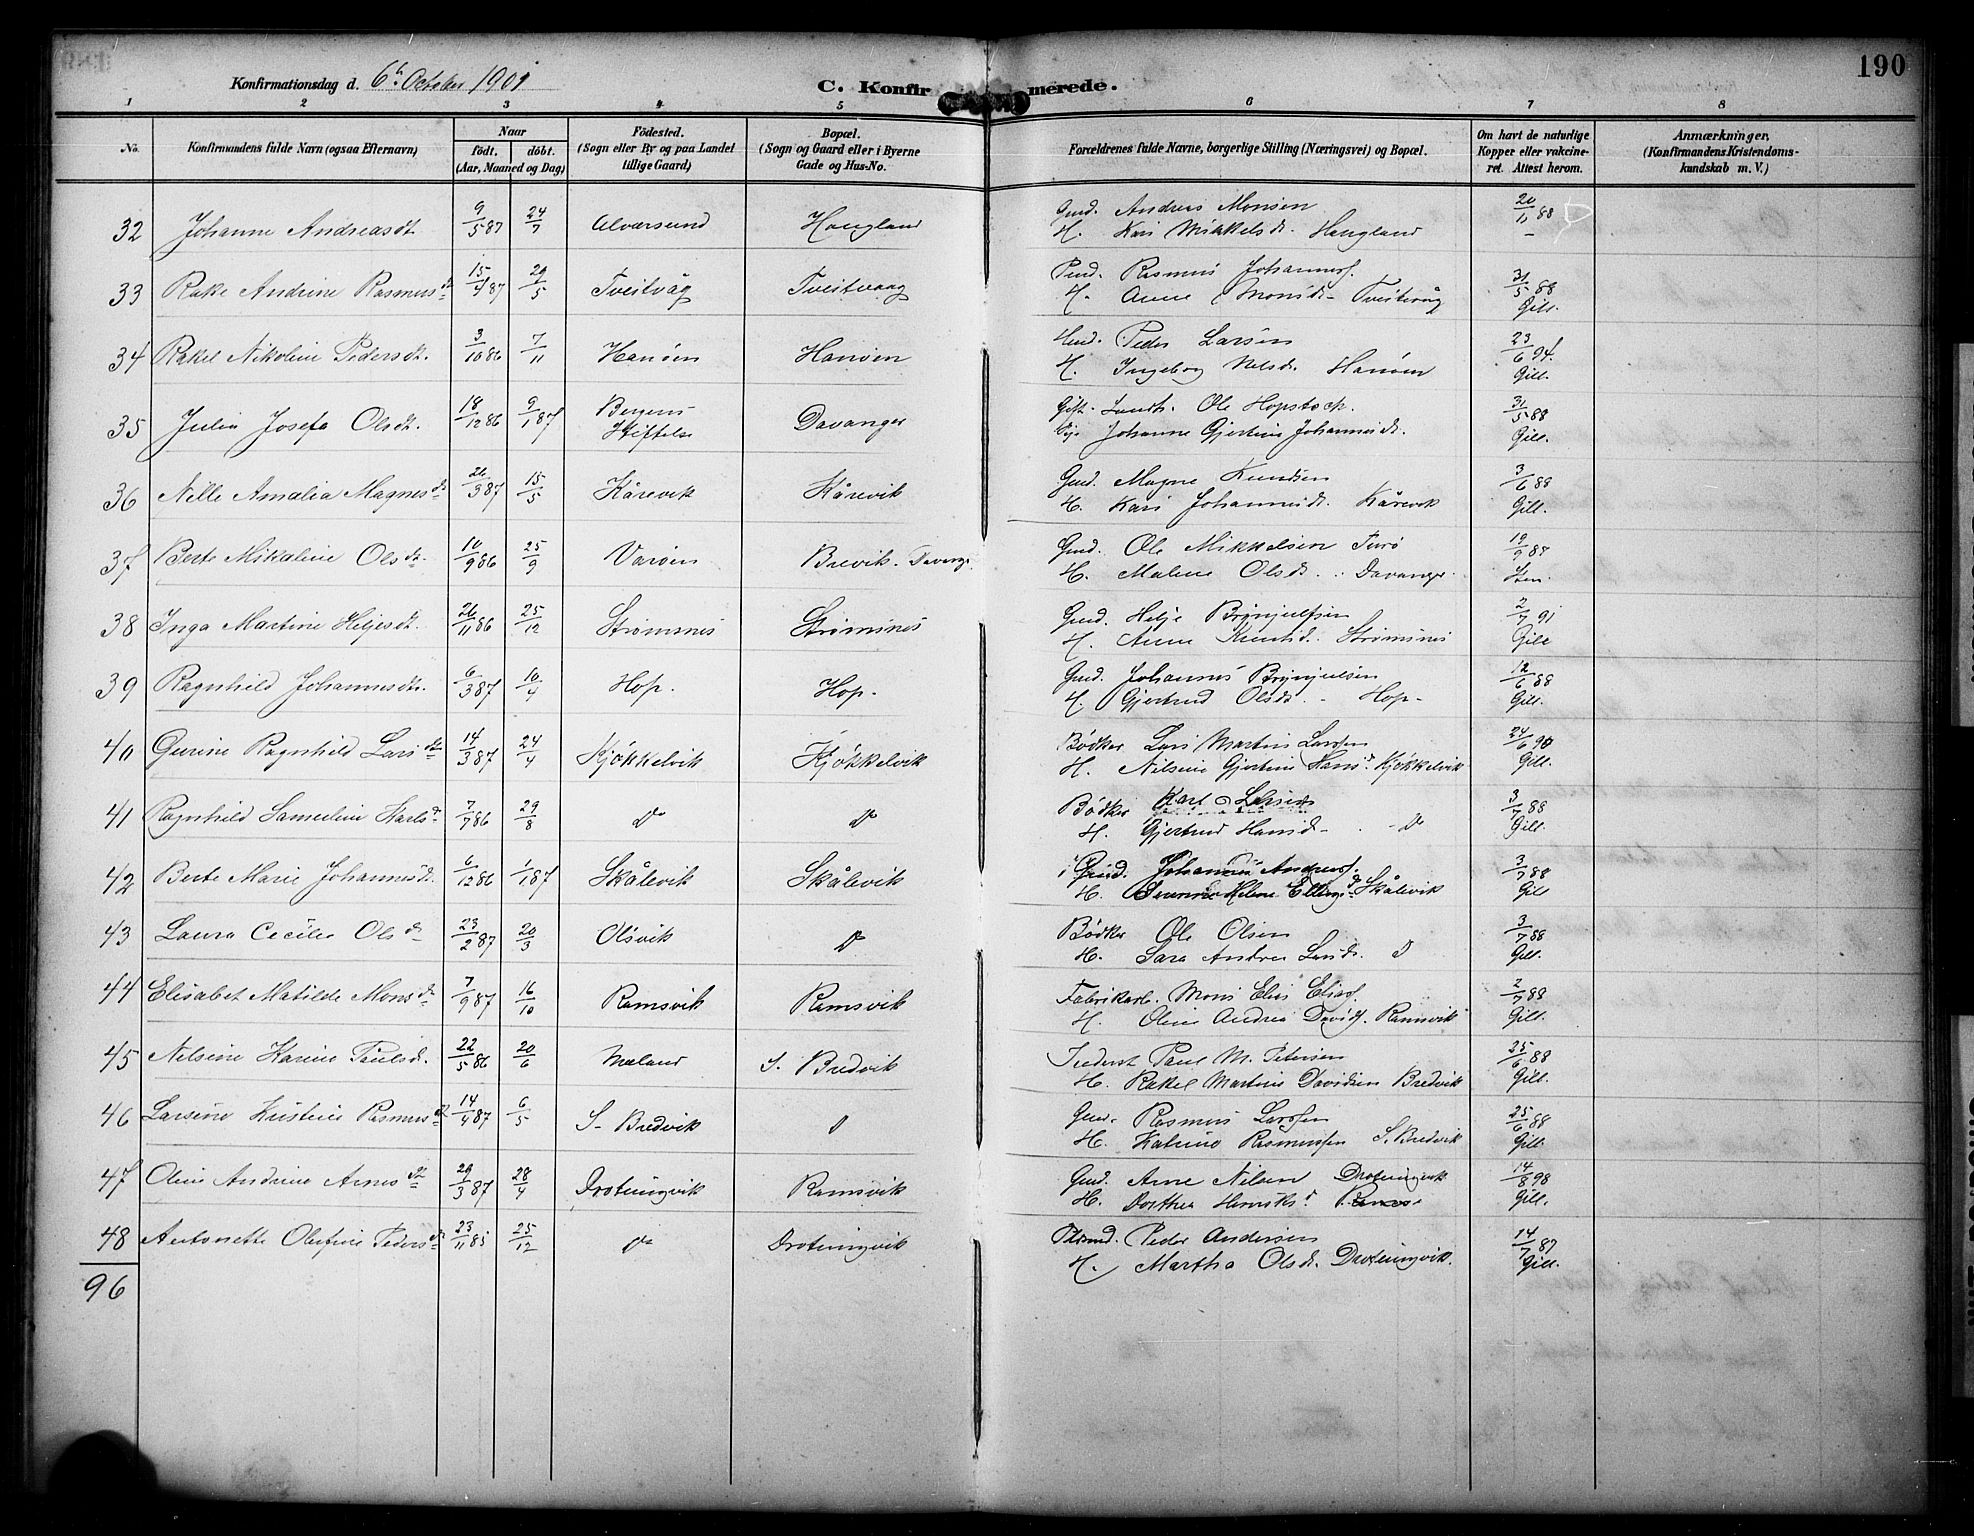 190
Konfirmationsdag d. 6th October 1901
C. Konfirmerede.
1 2 3 4 5 6 7 8
No. Konfirmandens fulde Navn (ogsaa Efternavn) Naar født, døbt. (Aar, Maaned og Dag) Fødested. (Sogn eller By og paa Landet tillige Gaard) Bopæl. (Sogn og Gaard eller i Byerne Gade og Hus-No. Forældrenes fulde Navne, borgerlige Stilling (Næringsvei) og Bopæl. Om havt de naturlige Kopper eller vakcineret. Attest herom. Anmærkninger, (Konfirmandens Kristendomskundskab m. V.)
32 Johanne Andreasdt. 9/5 87 24/7 Alversund Haugland Gmd. Andreas Monsen 20/11 88
H. Kari Mikkelsdt. Haugland
33 Rake Andrine Rasmusdt. 15/4 87 29/5 Tveitvåg Tveitvaag Rasmus Johannesf. 31/5 88
H. Anne Monsdt. Tveitevåg Gill.
34 Rakel Nikoline Pedersdt. 3/10 86 7/11 Hanøen Hanøen Peder Larsen 23/6 94.
H. Ingeborg Nelsdt. Hanøen Gill.
35 Julia Josefa Olsdt. 18/12 86 9/1 87 Bergens Stiftelse Davanger Ole Hopstock. 31/5 88
Johanne Gjertine Johannesdt. Gill.
36 Nille Amalia Magnesdt. 26/3 87 15/5 Kårevik Kårevik Gmd. Magne Knudsen 3/6 88
H. Kari Johannesdt. Kårevik Gill.
37 Berte Mikaline Olsdt. 10/9 86 25/9 Varøen Brevik. Davanger Gmd. Ole Mikkelsen Turø 19/9 88
H. Malene Olsdt. Davanger
38 Inga Martine Heljesdt. 26/11 86 25/12 Strømsnes Strømsnes Gmd. Helje Brynjulfsen 2/7 91
H. Anne Knutsdt. Strømsnes Gill
39 Ragnhild Johannesdt. 6/3 87 10/4 Hop. Hop. Gmd. Johannes Brynjulsen 12/6 88
H. Gjertrud Olsdt. Hop. Gill.
40 Gurine Ragnhild Larsdt. 14/3 87 24/4 Kjøkkelvik Kjøkkelvik Bødker Lars Martin Larsen 24/6 90
H. Nilsine Gjertine Hansd. Kjøkkelvik Gill.
41 Ragnhild Samueline Karlsdt. 7/7 86 29/8 Do Do Bødker Karl Larsen 3/7 88
H. Gjertrud Hansdt. Do Gill.
42 Berte Marie Johannesdt. 6/12 86 1/1 87 Skålevik Skålevik Gmd. Johannes Andersf. 3/7 88
H. Helene Ellingsd. Skålevik Gill
43 Laura Cecilie Olsdt. 23/2 87 20/3 Olsvik Do Bødker Ole Olsen 3/7 88
H. Sara Andrea Larsdt. D Gill.
44 Elisabet Matilde Monsdt. 7/9 87 16/10 Ramsvik Ramsvik Fabrikarb. Mons Elias Eliasf. 2/7 88
H. Oline Andrea Davidf. Ramsvik Gill.
45 Nilsine Karine Paulsd. 22/5 86 20/6 Mæland S. Bredvik Paul M. Petersen 25/6 88
H. Rakel Martine Davidsen Bredvik Gill.
46 Larsine Kristine Rasmusdt. 14/4 87 6/5 S. Bredvik D Gmd. Rasmus Larssen 25/6 88
H. Katrine Rasmussen S. Bredvik Gill
47 Oline Andrine Arnesdt. 29/3 87 28/4 Drotningvik Ramsvik Gmd. Arne Nilsen Drotningvik 14/8 98
H. Dorthea Henriksd. Gill.
48 Antonette Olufine Pedersdt. 23/11 85 25/12 Do Drotningvik Peder Andersen 14/7 87
H. Martha Olsdt. Drotningvik. Gill.
96